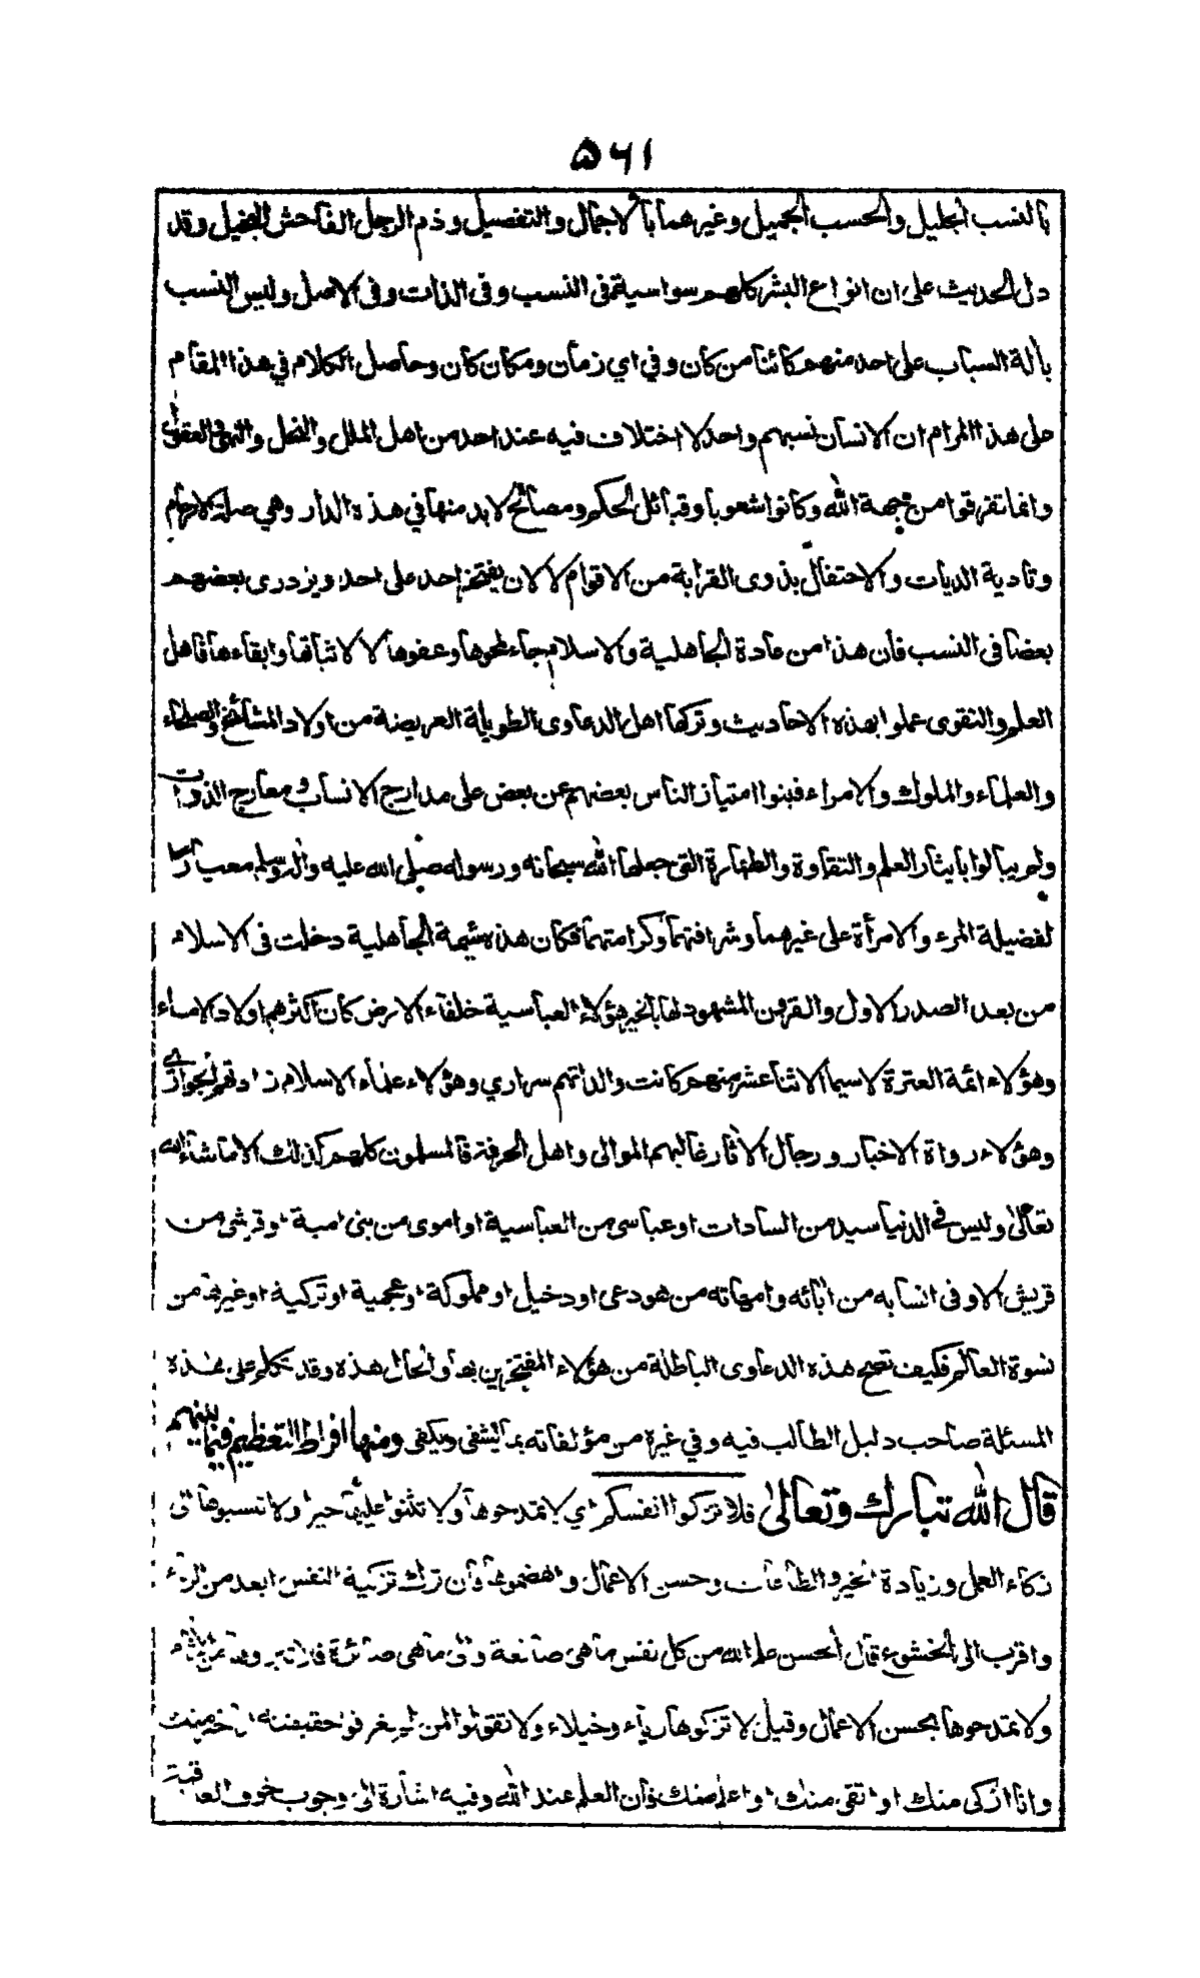 ۵۶۱
بالنسب الجليل والحسب الجميل وغيرهما بالاجمال والتفصيل وذم الرجل الفاحش البخيل وقد
دل الحديث على ان انواع البشر كلهم سواسية فى النسب وفى الذات وفى الاصل وليس النسب
بالة السباب على احد منهم كائنا من كان وفي اي زمان ومكان كان وحاصل الكلام في هذا المقام
على هذا المرام ان الانسان نسبهم واحد لا اختلاف فيه عند احد من اهل الملل والنحل والنهى والعقول
وانما تفرقوا من جهة الله وكانوا شعوبا وقبائل لحكم ومصالح لابد منها في هذه الدار وهي صلة الارحام
وتادية الديات والاحتفال بذوى القرابة من الاقوام لا لان يفتخر احد على احد ويزدرى بعضهم
بعضا فى النسب فان هذا من عادة الجاهلية والاسلام جاء لمحوها وعفوها لا لاثباتها وابقاءها فاهل
العلم والتقوى عملوا بهذه الاحاديث وتركها اهل الدعاوى الطويلة العريضة من اولاد المشائخ والصلحاء
والعلماء والملوك والامراء فبنوا امتياز الناس بعضهم عن بعض على مدارج الانساب ومعارج الذوات
ولم يبالوا بايثار العلم والتقاوة والطهارة التى جعلها الله سبحانه ورسوله صلى الله عليه واله وسلم معيارا
لفضيلة المرء والامرأة على غيرهما وشرافتهما وكرامتهما فكان هذه شيمة الجاهلية دخلت فى الاسلام
من بعد الصدر الاول والقرون المشهود لها بالخير هؤلاء العباسية خلفاء الارض كان اكثرهم اولاد الاماء
وهؤلاء ائمة العترة لاسيما الاثنا عشر منهم كانت والداتهم سراري وهؤلاء علماء الاسلام زادتهم الجواري
وهؤلاء رواة الاخبار ورجال الاثار غالبهم الموالى واهل الحرفة فالمسلمون كلهم كذلك الا ما شاء الله
تعالى وليس فى الدنيا سيد من السادات او عباسى من العباسية او اموى من بنى امية او قرشى من
قريش الا وفى انسابه من ابائه وامهاته من هو دعى او دخيل او مملوكة او عجمية او تركية او غيرها من
نسوة العالم فكيف تصح هذه الدعاوى الباطلة من هؤلاء المفتخرين بها والحال هذه وقد تكلم على هذه
المسئلة صاحب دليل الطالب فيه وفي غيره من مؤلفاته بما يشفى ويكفى ومنها افراط التعظيم فيما بينهم
قال الله تبارك وتعالى فلا تزكوا انفسكم اي لا تمدحوها ولا تثنوا عليها خيرا ولا تنسبوها الى
زكاء العمل وزيادة الخير والطاعات وحسن الاعمال واهضموها فان ترك تزكية النفس ابعد من الرياء
واقرب الى الخشوع قال الحسن علم الله من كل نفس ما هى صانعة والى ما هى صائرة فلا تبروها عن الاثام
ولا تمدحوها بحسن الاعمال وقيل لا تزكوها رياء وخيلاء ولا تقولوا لمن لم تعرفوا حقيقته انا خير منك
وانا ازكى منك او اتقى منك او اعلم منك فان العلم عند الله وفيه اشارة الى وجوب خوف العاقبة